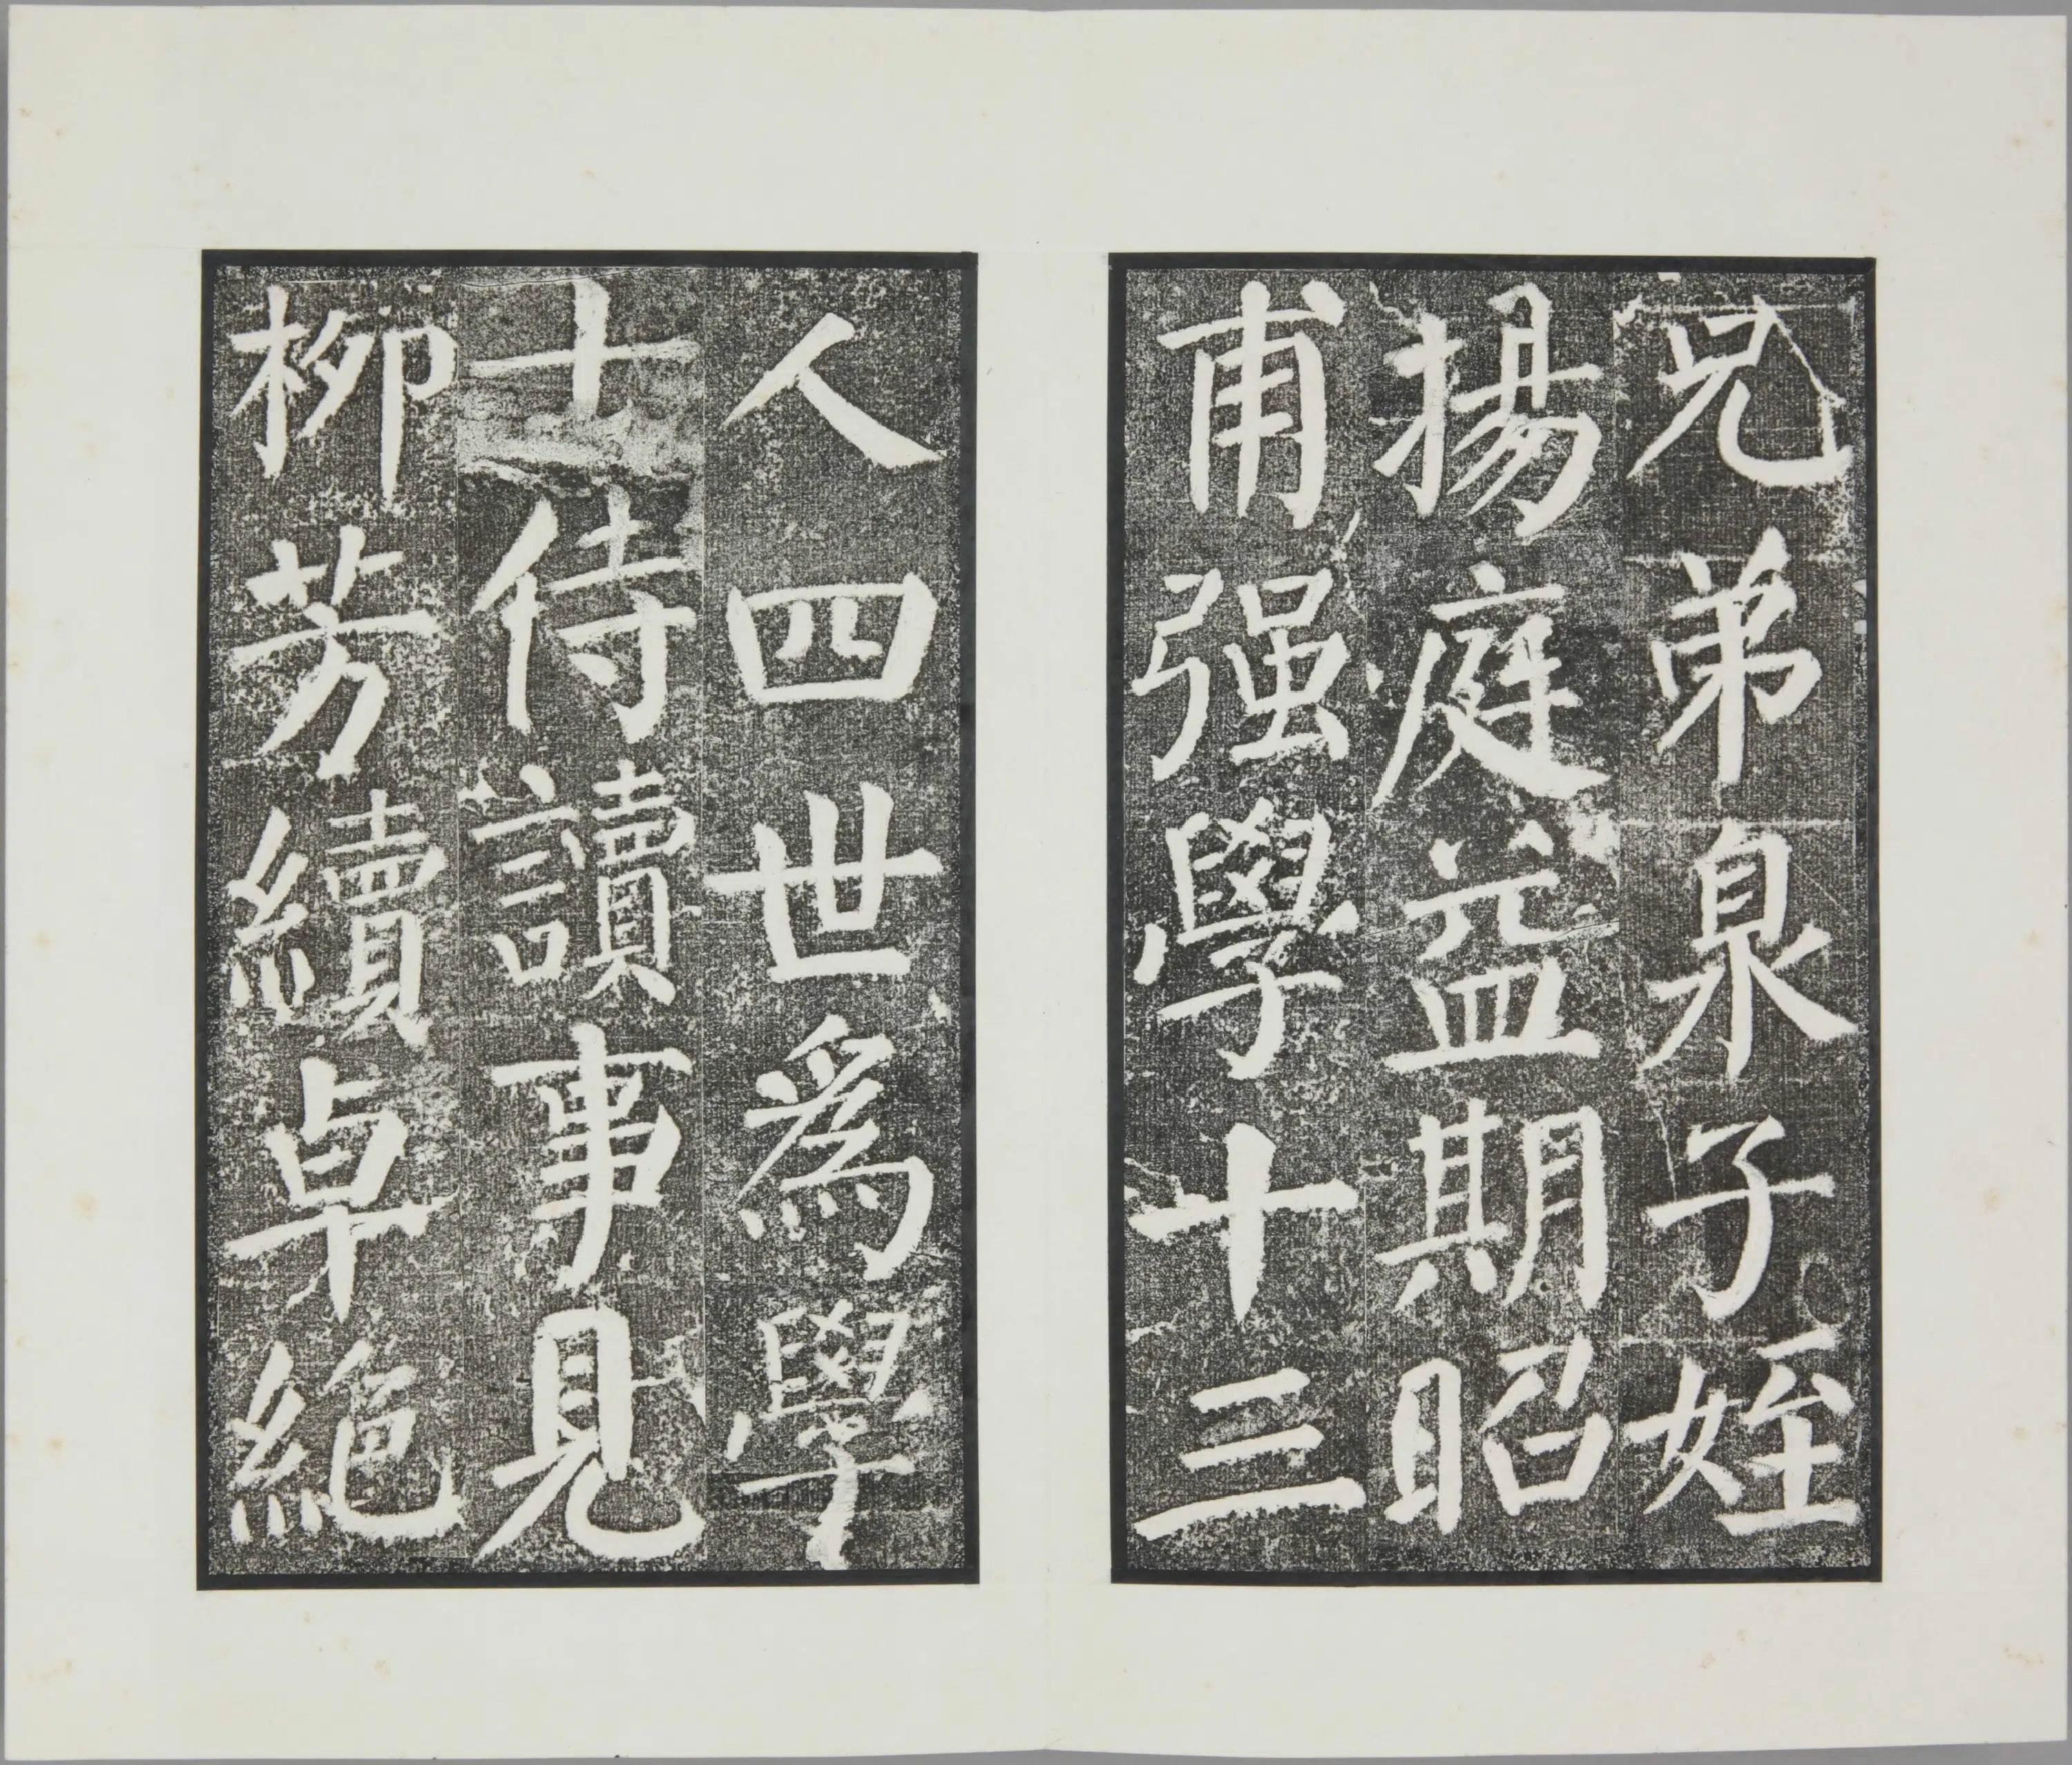 兄弟泉子姪
揚庭益期昭
甫强學十三
人四世爲學
士侍讀事見
柳芳續卓絶